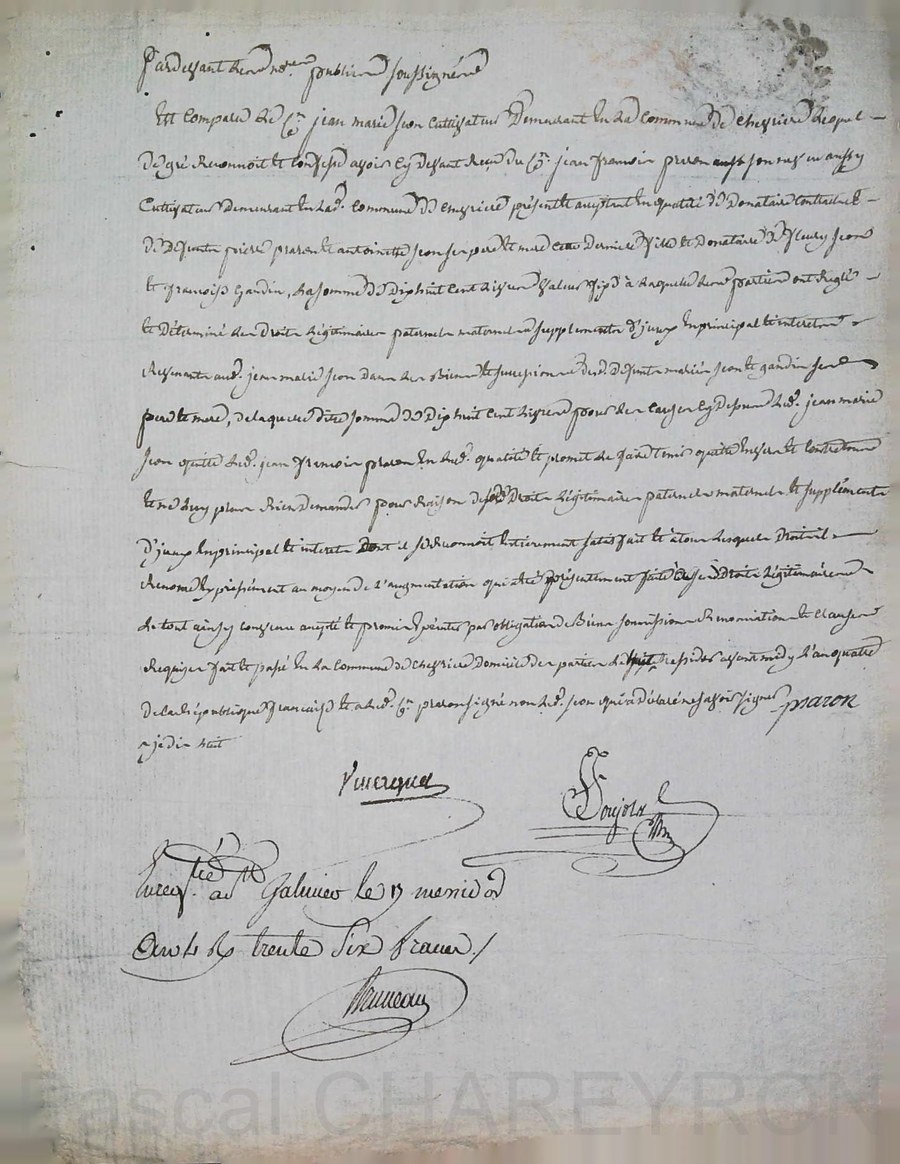 Pardevant les no.res publics soussignés
Est comparu le C.en jean marie jeon cultivateur Demeurant En la Commune De cheyriere Lequel
De gré Reconnoit et confesse avoir Cy Devant Reçu du C.en jean francois praron son neveu aussy
Cultivateur Demeurant En lad. Commune De cheyriere présent et acceptant En qualité De Donataire Contractuel
De Defunts pierre praron et antoinette jeon ses pere et mere cette Derniere fille et Donataire De fleury jeon
et françoise Gandin, la somme De Dix huit cent livres valeur fixe à laquelle les parties ont Reglé
et Déterminé les Droits Légitimaires paternels maternels supplements d'jceux En principal et interets
Revenants aud. jean marie jeon Dans les Biens et succession Desd. Defunts mariés jeon et gandin ses
pere et mere, De laquelle dite somme De Dix huit cent livres pour les causes Cy Dessus led. jean marie
jeon quitte led. jean françois praron En lad. qualité et promet le faire tenir quitte Envers et contre tous
et ne luy plus Rien Demander pour Raison De ses Droits Légitimaires paternels maternels et suppléments
D'jceux En principal et interets Dont il se Reconnoit Entierement satisfait et à tous lesquels Droits il
Renonce Expressément au moyen De l'augmentation qui a été présentement faite De ses Droits Légitimaires
Le tout ainsy convenu accepté et promis Exécuter par obligation De Biens soumissions Renonciation et clauses
Requises fait et passé En la Commune De cheyriere Domicile Des parties Le huit messidor avant midy L'an quatre
De la République française et a led. C.en praron signé non led. jeon qui a déclaré ne savoir signer praron
a jedis huit
Goujon
Enreg.tré au Galmier le 17 messidor
an 4 R trente six francs /
Bruneau
Pascal CHAREYRON